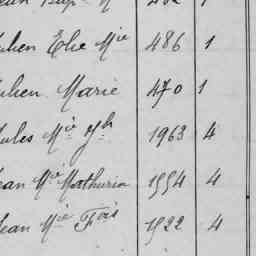 ulien Elie Mie 486 1
ulien Marie 470 1
ules Mie Jh 1963 4
ean Mie Mathurin 1554 4
ean Mie Fois 1522 4